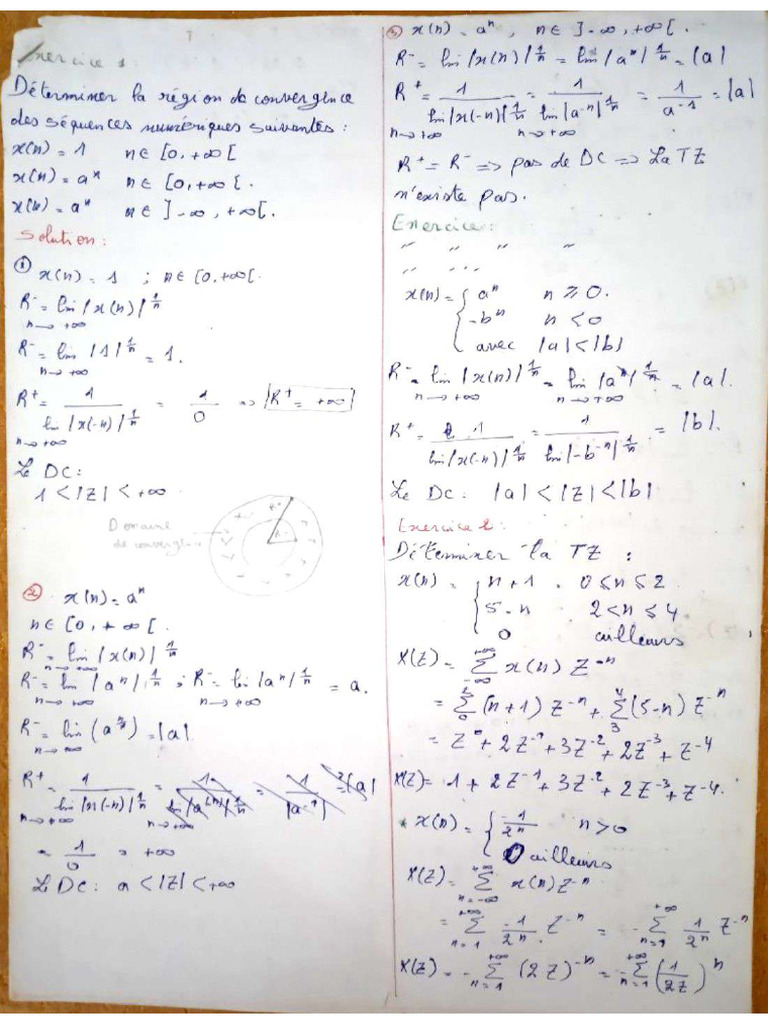 Exercice 1:
Déterminer la région de convergence
des séquences numériques suivantes:
x(n) = 1 n ∈ [0, +∞[
x(n) = aⁿ n ∈ [0, +∞[.
x(n) = aⁿ n ∈ ]-∞, +∞[.
Solution:
① x(n) = 1 ; n ∈ [0, +∞[.
R⁻ = lim |x(n)|^(1/n)
n → +∞
R⁻ = lim |1|^(1/n) = 1.
n → +∞
R⁺ = 1 / lim |x(-n)|^(1/n) = 1/0 ⇒ |R⁺ = +∞|
n → +∞
Le DC:
1 < |Z| < +∞
Domaine
de convergence
② x(n) = aⁿ
n ∈ [0, +∞[.
R⁻ = lim |x(n)|^(1/n)
n → +∞
R⁻ = lim |aⁿ|^(1/n) ; R⁻ = lim |aⁿ|^(1/n) = a.
n → +∞ n → +∞
R⁻ = lim (a^(n/n)) = |a|
n → +∞
R⁺ = 1 / lim |x(-n)|^(1/n) = 1 / lim |a^(-n)|^(1/n) = 1 / |a⁻¹| = |a|
n → +∞ n → +∞
= 1/0 = +∞
Le DC: a < |Z| < +∞
③ x(n) = aⁿ, n ∈ ]-∞, +∞[.
R⁻ = lim |x(n)|^(1/n) = lim |aⁿ|^(1/n) = |a|
R⁺ = 1 / lim |x(-n)|^(1/n) = 1 / lim |a⁻ⁿ|^(1/n) = 1 / a⁻¹ = |a|
n → +∞ n → +∞
R⁺ = R⁻ ⇒ pas de DC ⇒ La TZ
n'existe pas.
Exercice:
" " " "
" " " "
x(n) = { aⁿ n ≥ 0.
-bⁿ n < 0
avec |a| < |b|
R⁻ = lim |x(n)|^(1/n) = lim |aⁿ|^(1/n) = |a|.
n → +∞ n → +∞
R⁺ = 1 / lim |x(-n)|^(1/n) = 1 / lim |-b⁻ⁿ|^(1/n) = |b|.
Le DC: |a| < |Z| < |b|
Exercice 2:
Déterminer la TZ :
x(n) = { n+1 . 0 ≤ n ≤ 2
5-n 2 < n ≤ 4.
0 ailleurs
X(Z) = Σ_(-∞)^(+∞) x(n) Z⁻ⁿ
= Σ_0^2 (n+1) Z⁻ⁿ + Σ_3^4 (5-n) Z⁻ⁿ
= Z⁰ + 2Z⁻¹ + 3Z⁻² + 2Z⁻³ + Z⁻⁴
X(Z) = 1 + 2Z⁻¹ + 3Z⁻² + 2Z⁻³ + Z⁻⁴.
* x(n) = { -1/2ⁿ n > 0
0 ailleurs
X(Z) = Σ_(n=-∞)^(+∞) x(n) Z⁻ⁿ
= Σ_(n=1)^(+∞) -1/2ⁿ . Z⁻ⁿ = - Σ_(n=1)^(+∞) 1/2ⁿ Z⁻ⁿ
X(Z) = - Σ_(n=1)^(+∞) (2Z)⁻ⁿ = - Σ_(n=1)^(+∞) (1/2Z)ⁿ